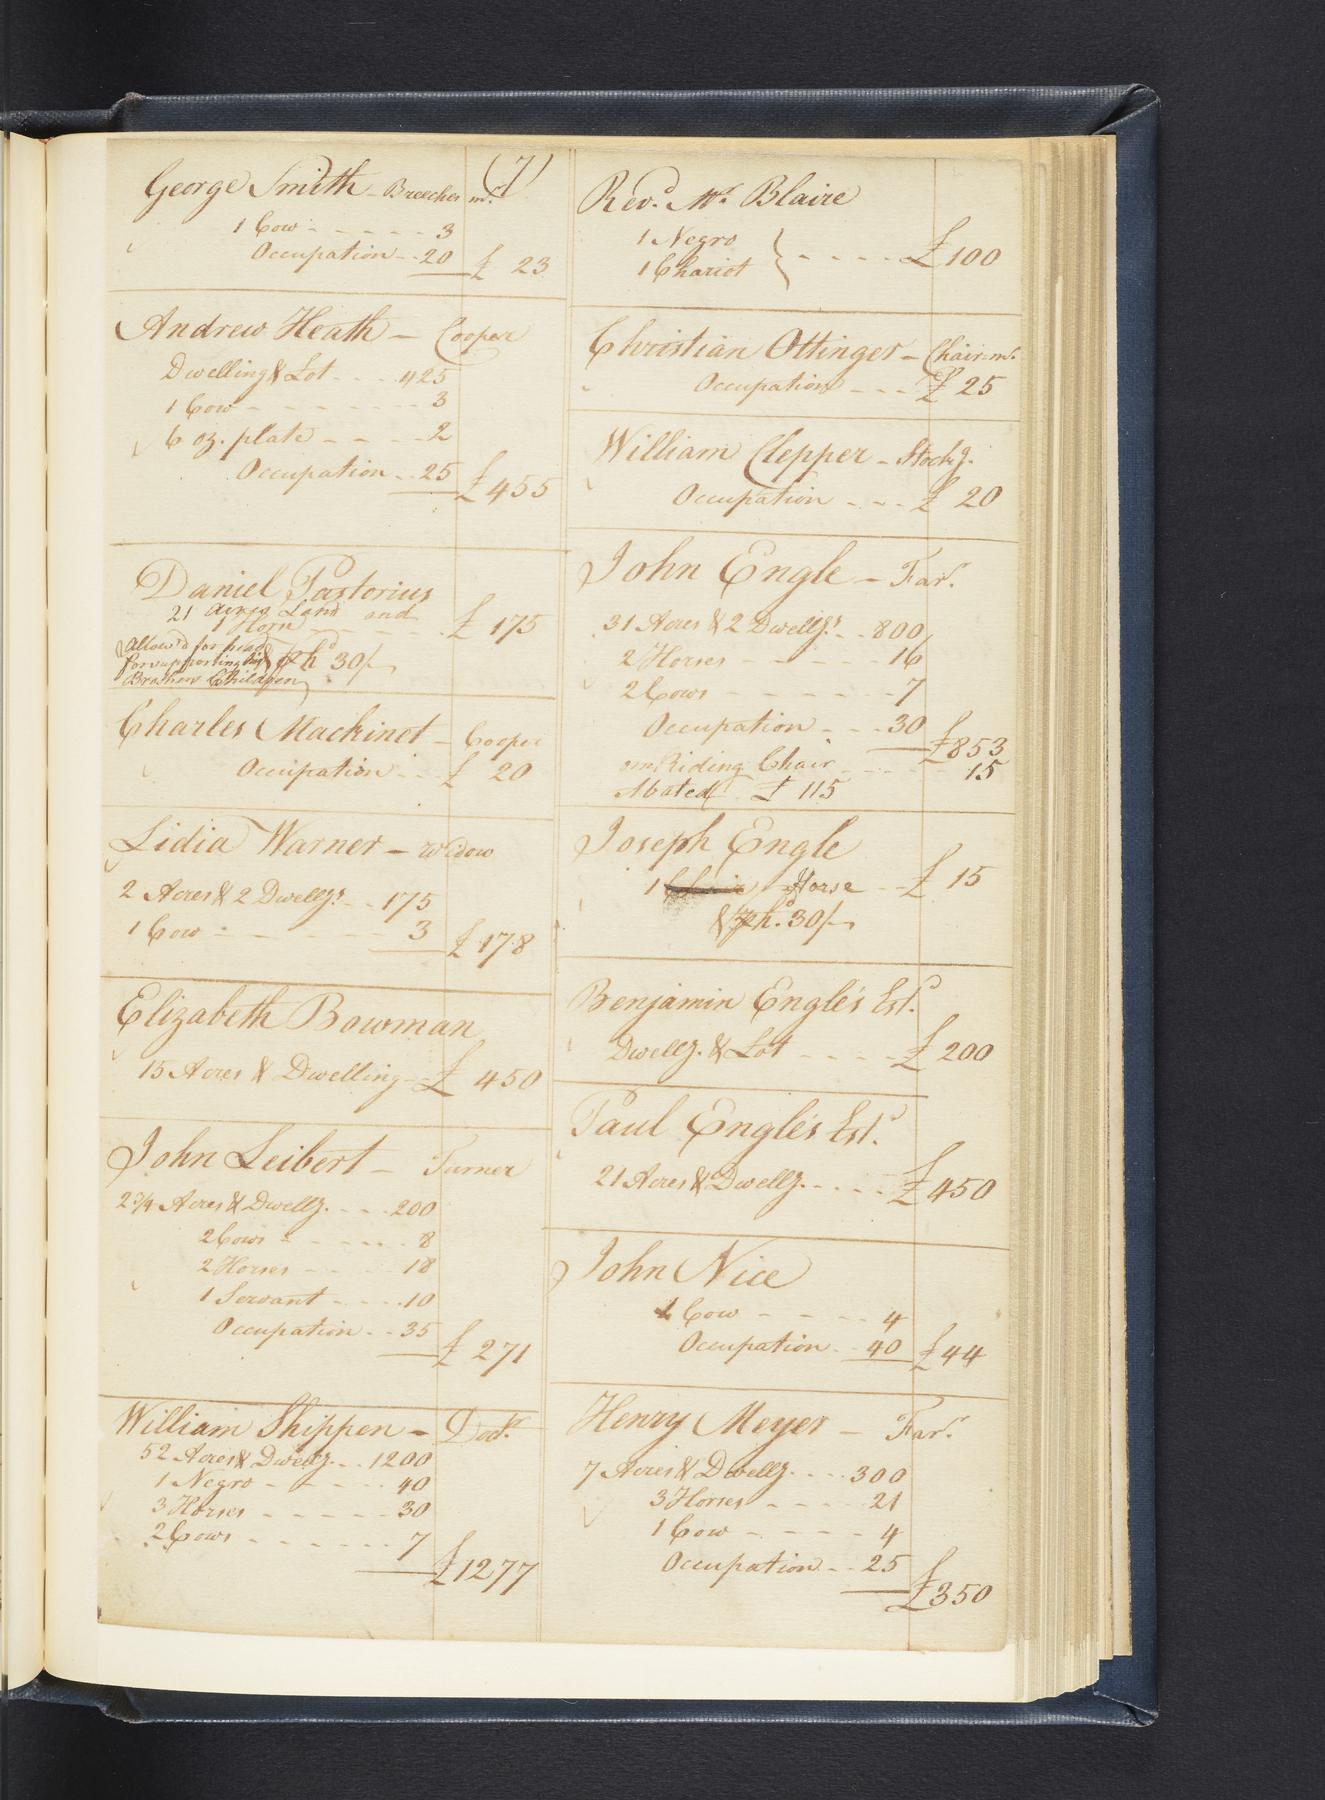 (7)
George Smith - Breeches mr.
1 Cow - - - - - 3
Occupation - - 20 £ 23
Andrew Heath - Cooper
Dwelling & Lot - - - 425
1 Cow - - - - - - - 3
6 oz. plate - - - - 2
Occupation - - 25 £ 455
Daniel Pastorius
21 Acres Land and
1 Horse - - - - £ 175
Allow'd for
for supporting his ph'd 30/-
Brothers Children
Charles Mackinet - Cooper
Occupation - - - £ 20
Lidia Warner - Widow
2 Acres & 2 Dwellgs. - - 175
1 Cow - - - - - 3 £ 178
Elizabeth Bowman
15 Acres & Dwelling - - £ 450
John Leibert - Turner
2 3/4 Acres & Dwellg. - - - 200
2 Cows - - - - - 8
2 Horses - - - - 18
1 Servant - - - - 10
Occupation - - 35 £ 271
William Shippen - Doctr.
52 Acres & Dwellg. - - 1200
1 Negro - - - - - 40
3 Horses - - - - - 30
2 Cows - - - - - - 7 £ 1277
Revd. Mr. Blaire
1 Negro
1 Chariot } - - - - £ 100
Christian Ottinger - Chair mr.
Occupation - - - £ 25
William Clepper - Stockg.
Occupation - - - £ 20
John Engle - Farr.
31 Acres & 2 Dwellgs. - - 800
2 Horses - - - - - 16
2 Cows - - - - - - 7
Occupation - - - 30 £ 853
om Riding Chair - - - - 15
Abated £ 115
Joseph Engle
1 Horse - - £ 15
& ph'd. 30/-
Benjamin Engle's Estd.
Dwellg. & Lot - - - - £ 200
Paul Engle's Estd.
21 Acres & Dwellg. - - - - £ 450
John Nice
1 Cow - - - - - 4
Occupation - - 40 £ 44
Henry Meyer - Farr.
7 Acres & Dwellg. - - - 300
3 Horses - - - - 21
1 Cow - - - - - 4
Occupation - - 25 £ 350